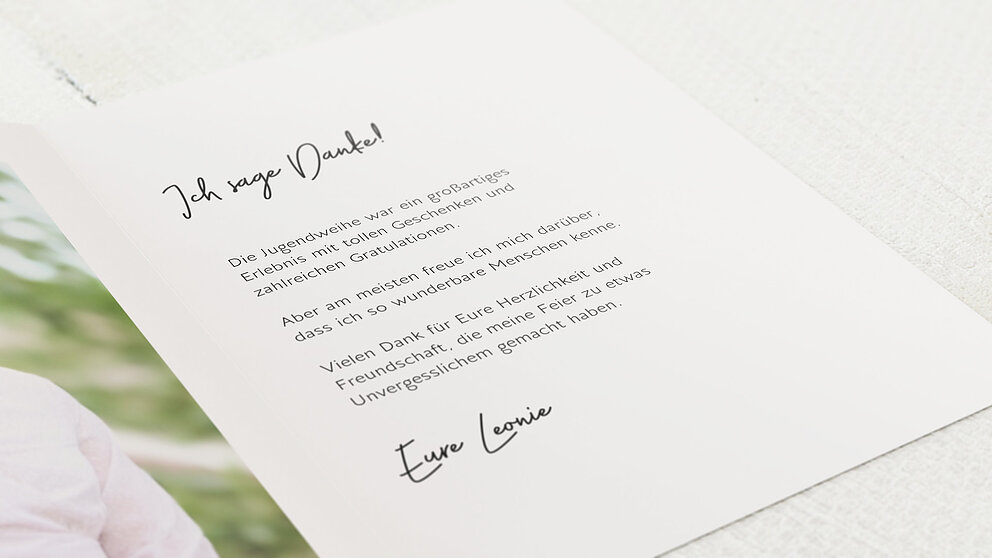 Ich sage Danke!
Die Jugendweihe war ein großartiges
Erlebnis mit tollen Geschenken und
zahlreichen Gratulationen.
Aber am meisten freue ich mich darüber,
dass ich so wunderbare Menschen kenne.
Vielen Dank für Eure Herzlichkeit und
Freundschaft, die meine Feier zu etwas
Unvergesslichem gemacht haben.
Eure Leonie